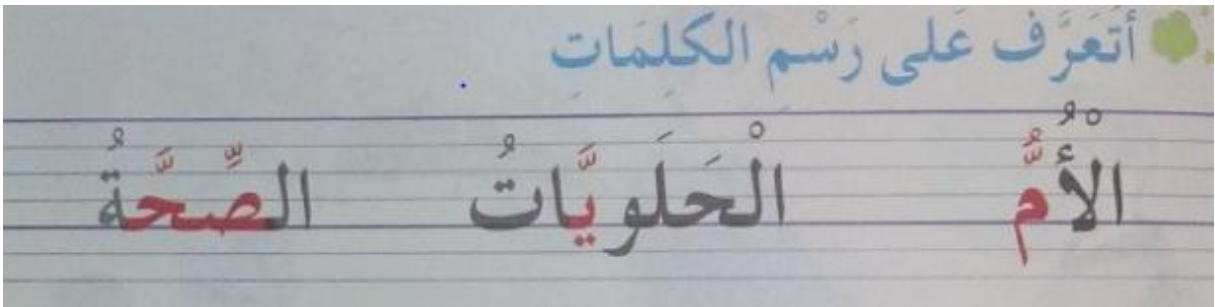 أَتَعَرَّف عَلى رَسْمِ الكَلِمَاتِ
الْأُمُّ الْحَلَويَّاتُ الصِّحَّةُ